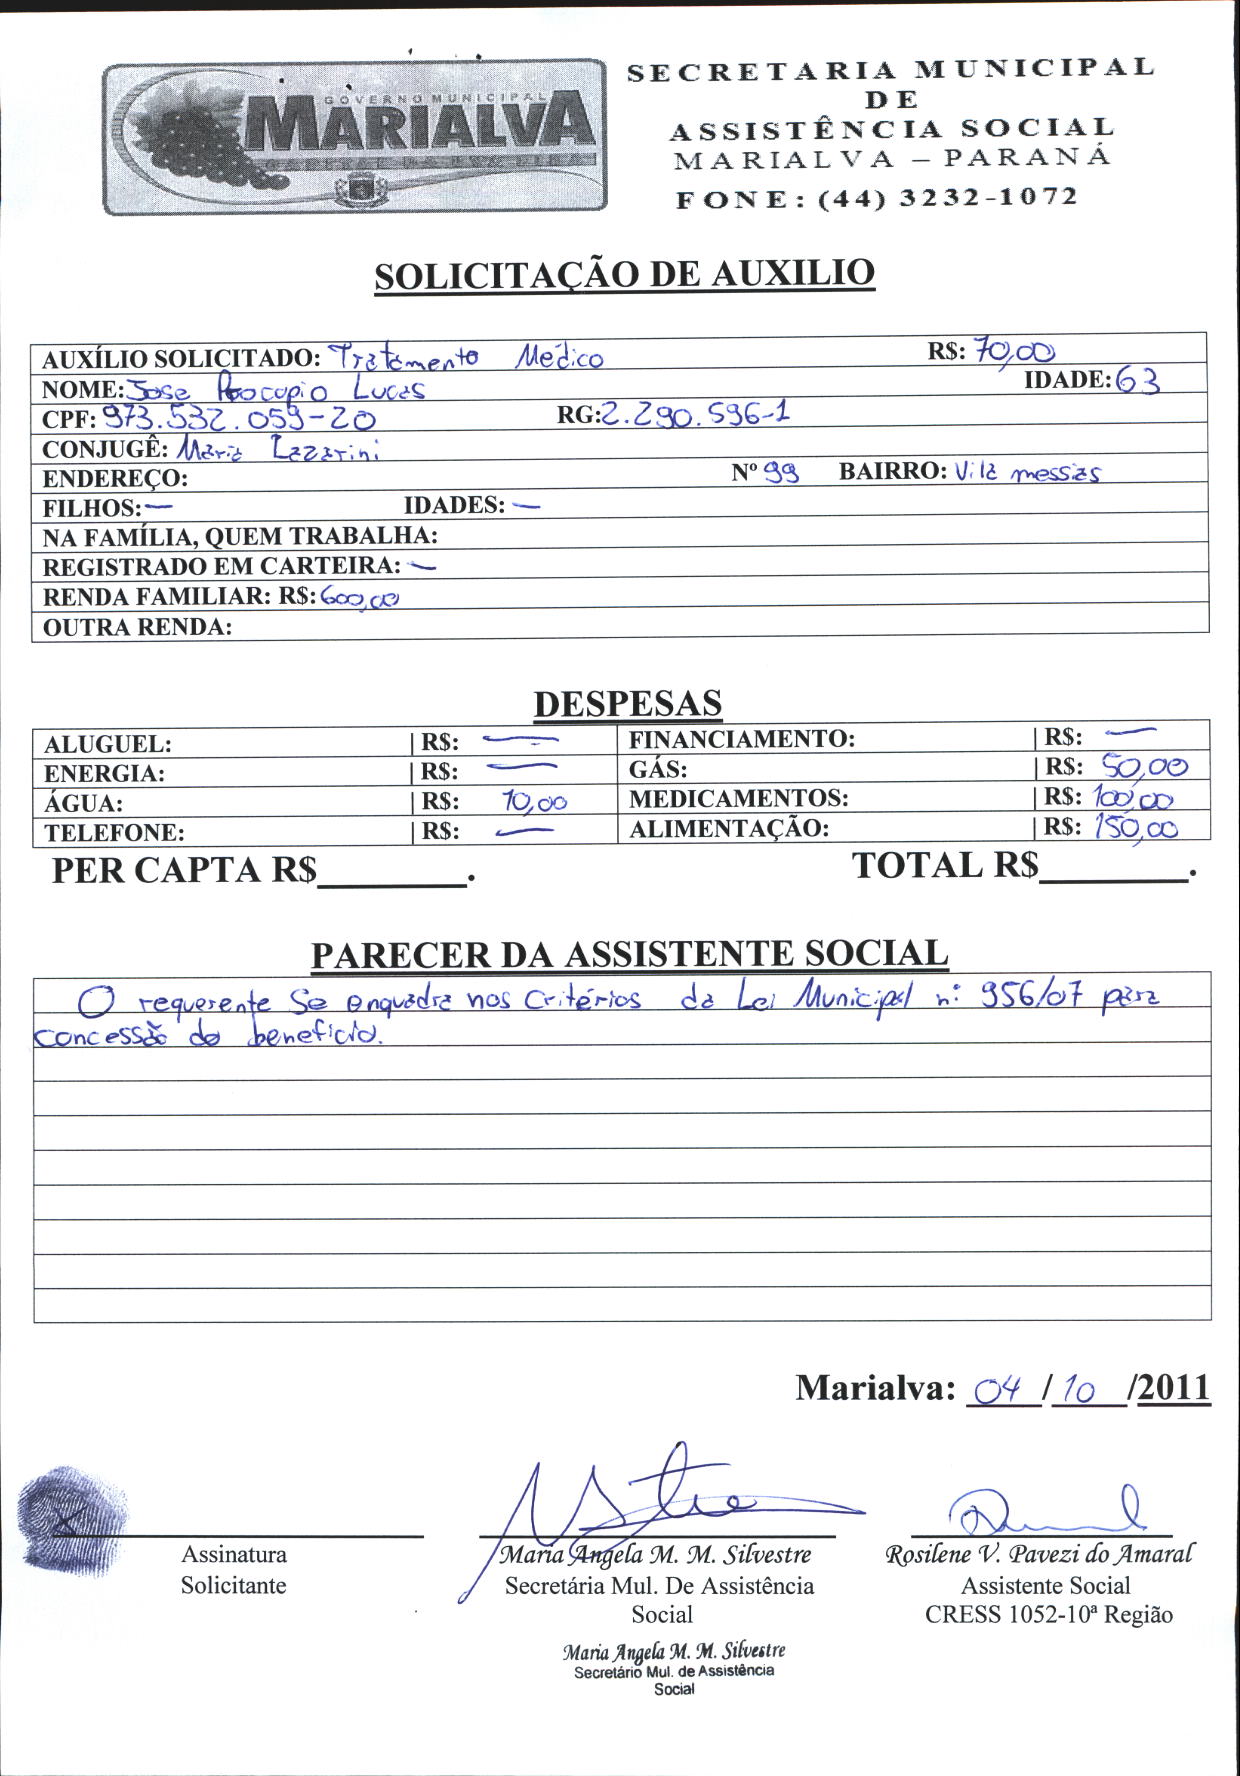 GOVERNO MUNICIPAL
MARIALVA
SECRETARIA MUNICIPAL
DE
ASSISTÊNCIA SOCIAL
MARIALVA – PARANÁ
FONE: (44) 3232-1072
SOLICITAÇÃO DE AUXILIO
AUXÍLIO SOLICITADO: Tratamento Médico R$: 70,00
NOME: Jose Procopio Lucas IDADE: 63
CPF: 973.532.059-20 RG: 2.290.596-1
CONJUGÊ: Maria Lazarini
ENDEREÇO: Nº 99 BAIRRO: Vila messias
FILHOS: — IDADES: —
NA FAMÍLIA, QUEM TRABALHA:
REGISTRADO EM CARTEIRA: —
RENDA FAMILIAR: R$: 600,00
OUTRA RENDA:
DESPESAS
ALUGUEL: | R$: — FINANCIAMENTO: | R$: —
ENERGIA: | R$: — GÁS: | R$: 50,00
ÁGUA: | R$: 10,00 MEDICAMENTOS: | R$: 100,00
TELEFONE: | R$: — ALIMENTAÇÃO: | R$: 150,00
PER CAPTA R$________. TOTAL R$________.
PARECER DA ASSISTENTE SOCIAL
O requerente Se enquadra nos Critérios da Lei Municipal nº 956/07 para
concessão do beneficio.
Marialva: 04 / 10 /2011
Assinatura
Solicitante
Maria Angela M. M. Silvestre
Secretária Mul. De Assistência
Social
Maria Angela M. M. Silvestre
Secretário Mul. de Assistência
Social
Rosilene V. Pavezi do Amaral
Assistente Social
CRESS 1052-10ª Região